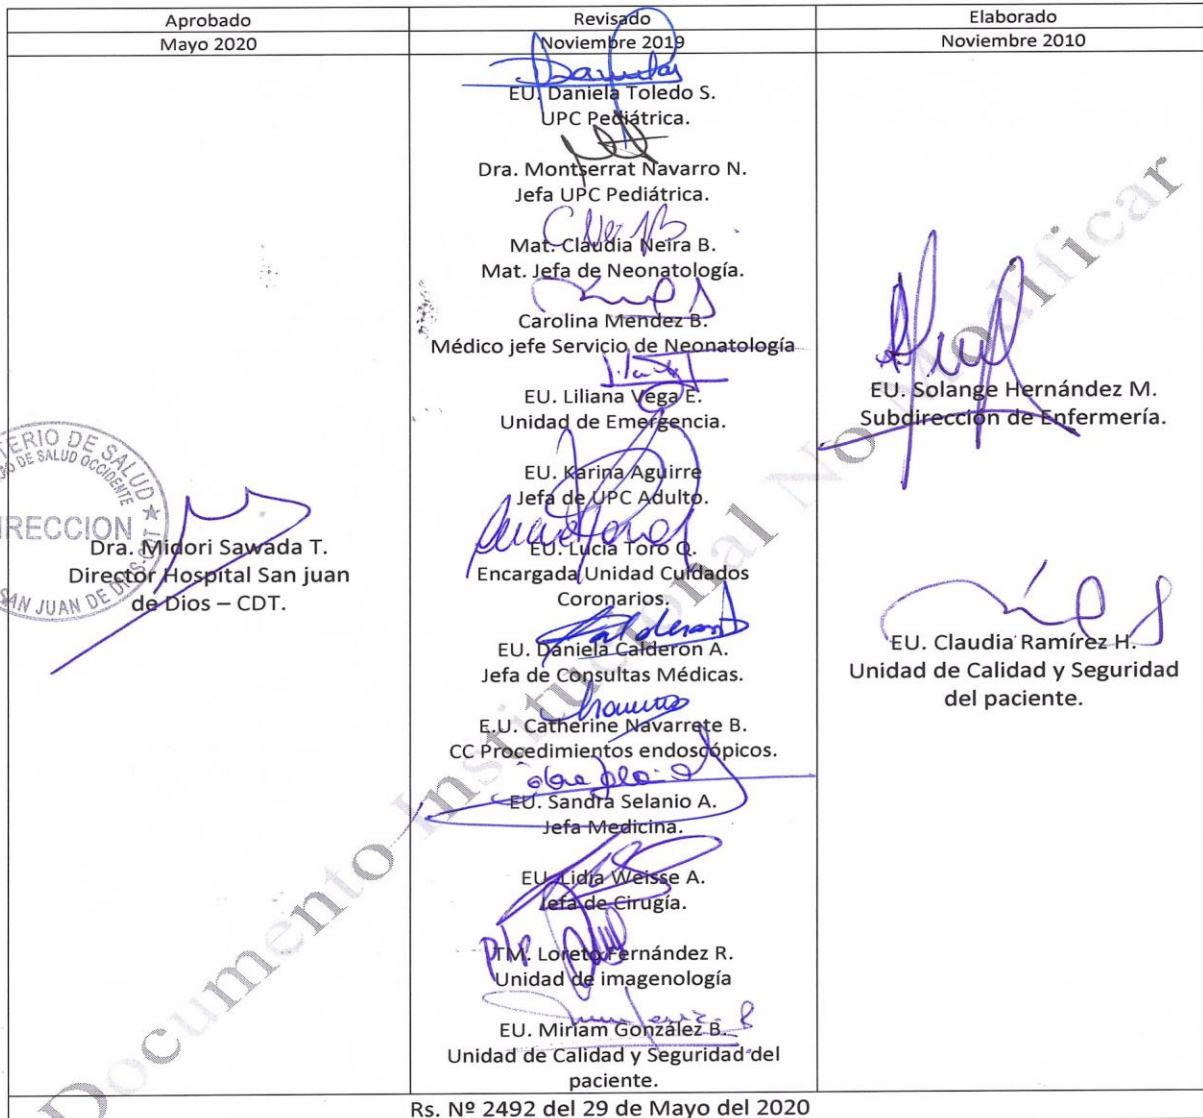 Aprobado
Revisado
Elaborado
Mayo 2020
Noviembre 2019
Noviembre 2010
TERIO DE SALUD
DE SALUD OCCIDENTE
RECCION
SAN JUAN DE
Dra. Midori Sawada T.
Director Hospital San juan
de Dios – CDT.
EU. Daniela Toledo S.
UPC Pediátrica.
Dra. Montserrat Navarro N.
Jefa UPC Pediátrica.
Mat. Claudia Neira B.
Mat. Jefa de Neonatología.
Carolina Mendez B.
Médico jefe Servicio de Neonatología
EU. Liliana Vega E.
Unidad de Emergencia.
EU. Karina Aguirre
Jefa de UPC Adulto.
EU. Lucia Toro O.
Encargada Unidad Cuidados
Coronarios.
EU. Daniela Calderón A.
Jefa de Consultas Médicas.
E.U. Catherine Navarrete B.
CC Procedimientos endoscópicos.
EU. Sandra Selanio A.
Jefa Medicina.
EU. Lidia Weisse A.
Jefa de Cirugía.
p/p
TM. Loreto Fernández R.
Unidad de imagenología
EU. Miriam González B.
Unidad de Calidad y Seguridad del
paciente.
EU. Solange Hernández M.
Subdirección de Enfermería.
EU. Claudia Ramírez H.
Unidad de Calidad y Seguridad
del paciente.
Rs. Nº 2492 del 29 de Mayo del 2020
Documento Institucional No Modificar